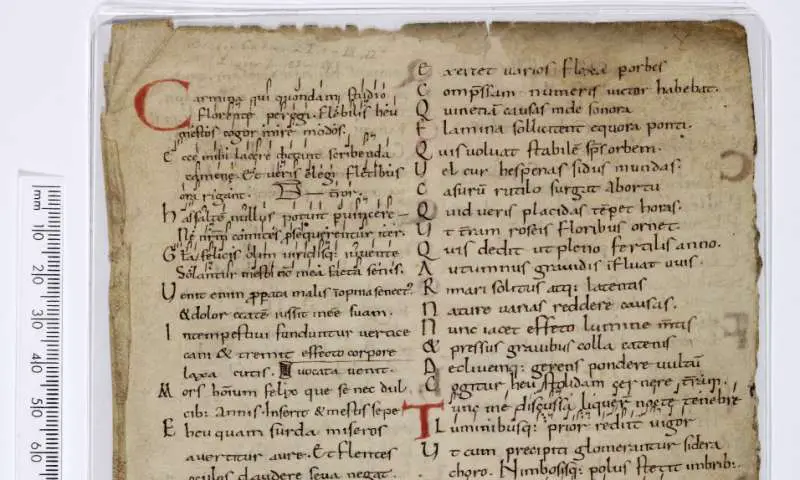 Carmina qui quondam studio
Florente peregi. Flebilis heu
mestos cogor inire modos.
Ecce mihi lacere dictant scribenda
camene. Et veris elegi Fletibus
ora rigant. — t̄ror.
has saltē nullus potuit puincere —
Ne nr̄m comites p̄sequerentur iter.
Gl̄a felicis olim uiridisq: iuuente
Solantur mesti nc̄ mea Fata senis.
Venit enim p̱pata malis inopina senect᾽
& dolor etatē iussit inēe suam.
Intempestiui funduntur uertice
cani & tremit effecto corpore
laxa cutis. uocata uenit.
Mors hoīnum felix que se nec dul
cib: Annis. Inserit & mestis sepe
Eheu quam surda miseros
auertitur aure. Et Flentes
oculos claudere seua negat.
Exercet uarios flexa p orbes
Comp̄ssam numeris uictor habebat.
Quinetiā causas unde sonora
Flamina sollicitent equora ponti.
Quis uoluat stabilē sp̄s orbem.
Vel cur hesperias sidus in undas.
Casurū rutilo surgat abortu
Quid ueris placidas tēpet horas.
Vt t̄ram roseis Floribus ornet.
Quis dedit ut pleno fertilis anno.
Autumnus grauidis īfluat uuis.
Rimari solitus atq: latentis
Nature uarias reddere causas.
Nunc iacet effeto lumine m̄tis
& pressus grauibus colla catenis
Decliuemq: gerens pondere uultū
Cogitur heu stolidam cernere t̄ram.
Tunc me discussa liquer̄ nocte tenebre
Luminibusq: prior rediit uigor
Vt cum precipiti glomerantur sidera
choro. Nimbosisq: polus stetit imbrib:
mm
10
20
30
40
50
60